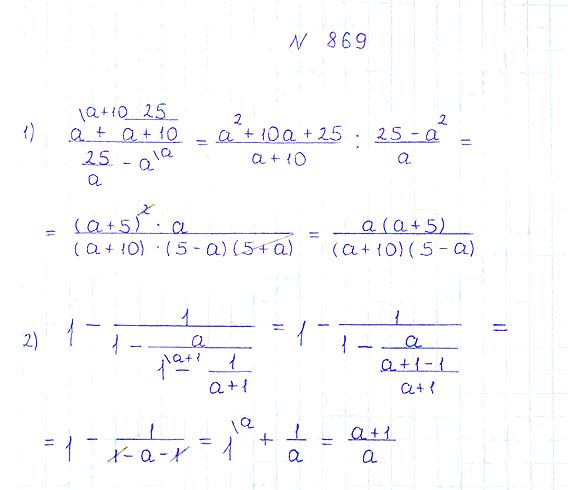 N 869
1) (a^{\a+10} + 25/(a+10)) / (25/a - a^{\a}) = (a² + 10a + 25)/(a + 10) : (25 - a²)/a =
= ((a+5)² · a)/((a+10) · (5-a)(5+a)) = (a(a+5))/((a+10)(5-a))
2) 1 - 1/(1 - a/(1^{\a+1} - 1/(a+1))) = 1 - 1/(1 - a/((a+1-1)/(a+1))) =
= 1 - 1/(1-a-1) = 1^{\a} + 1/a = (a+1)/a